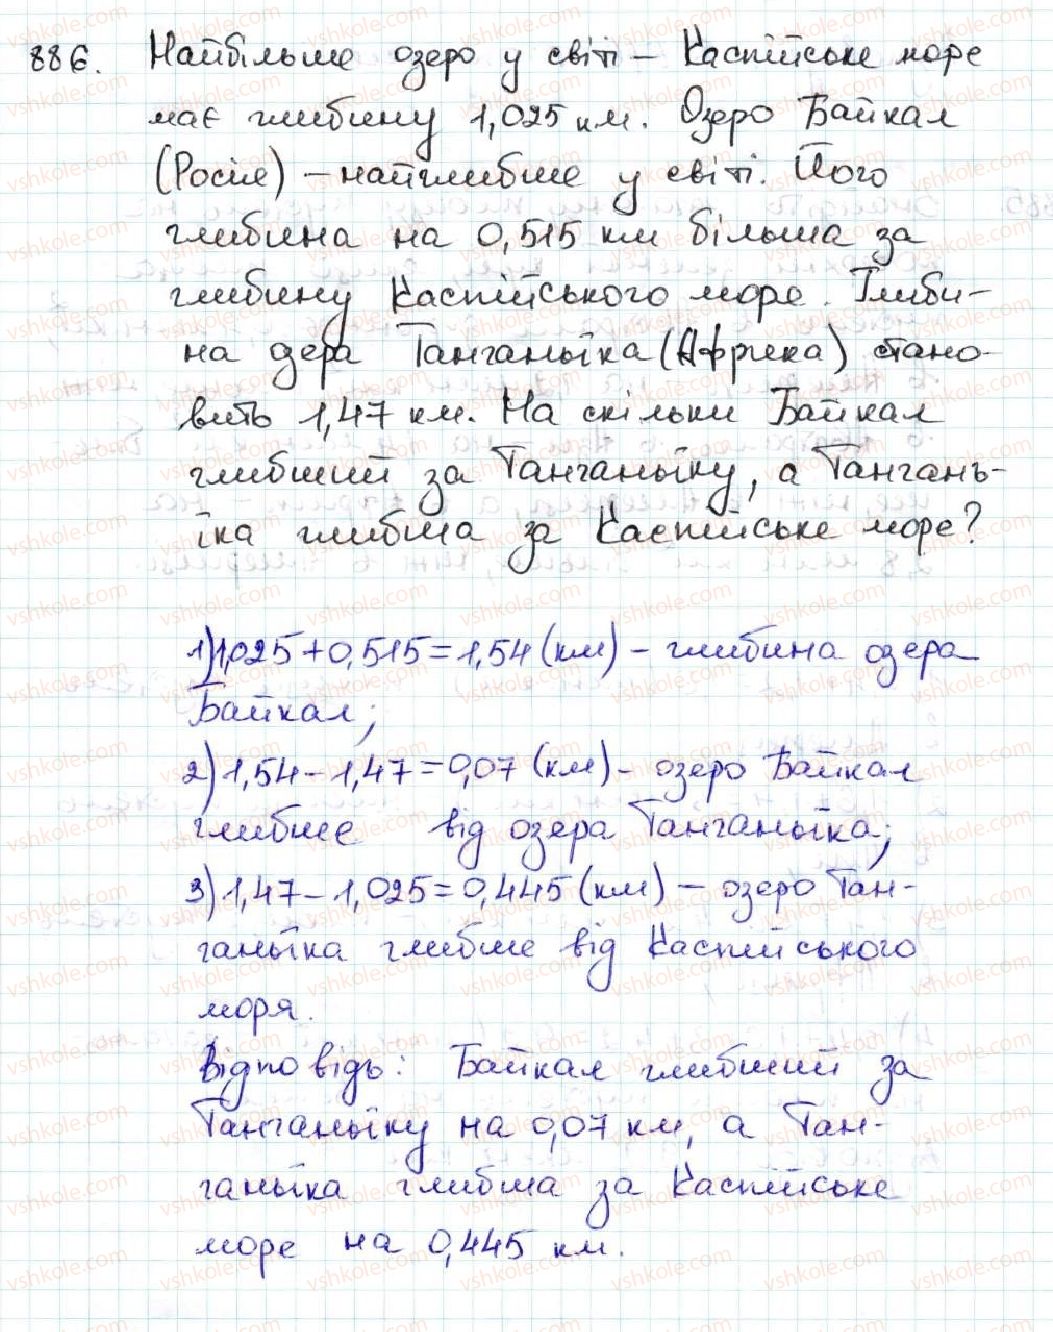 886. Найбільше озеро у світі – Каспійське море
має глибину 1,025 км. Озеро Байкал
(Росія) – найглибше у світі. Його
глибина на 0,515 км більша за
глибину Каспійського море. Глиби-
на озера Танганьїка (Африка) стано-
вить 1,47 км. На скільки Байкал
глибший за Танганьїку, а Тангань-
їка глибша за Каспійське море?
1) 1,025 + 0,515 = 1,54 (км) – глибина озера
Байкал;
2) 1,54 – 1,47 = 0,07 (км) – озеро Байкал
глибше від озера Танганьїка;
3) 1,47 – 1,025 = 0,445 (км) – озеро Тан-
ганьїка глибше від Каспійського
моря.
Відповідь: Байкал глибший за
Танганьїку на 0,07 км, а Тан-
ганьїка глибша за Каспійське
море на 0,445 км.
vshkole.com